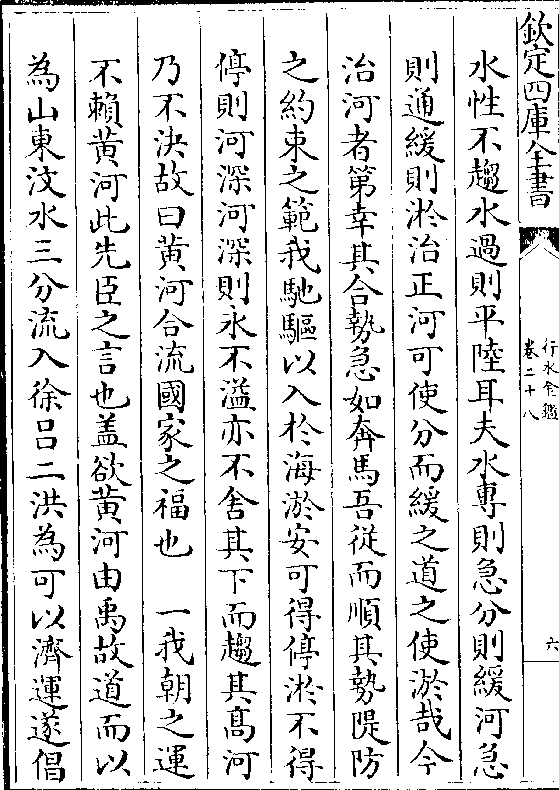 欽定四庫全書
行水金鑑
卷二十八
六
水性不趨水過則平陸耳夫水專則急分則緩河急
則通緩則淤治正河可使分而緩之道之使淤哉今
治河者第幸其合勢急如奔馬吾從而順其勢隄防
之約束之範我馳驅以入於海淤安可得停淤不得
停則河深河深則永不溢亦不舍其下而趨其髙河
乃不決故曰黄河合流國家之福也　一我朝之運
不賴黄河此先臣之言也盖欲黄河由禹故道而以
為山東汶水三分流入徐吕二洪為可以濟運遂倡